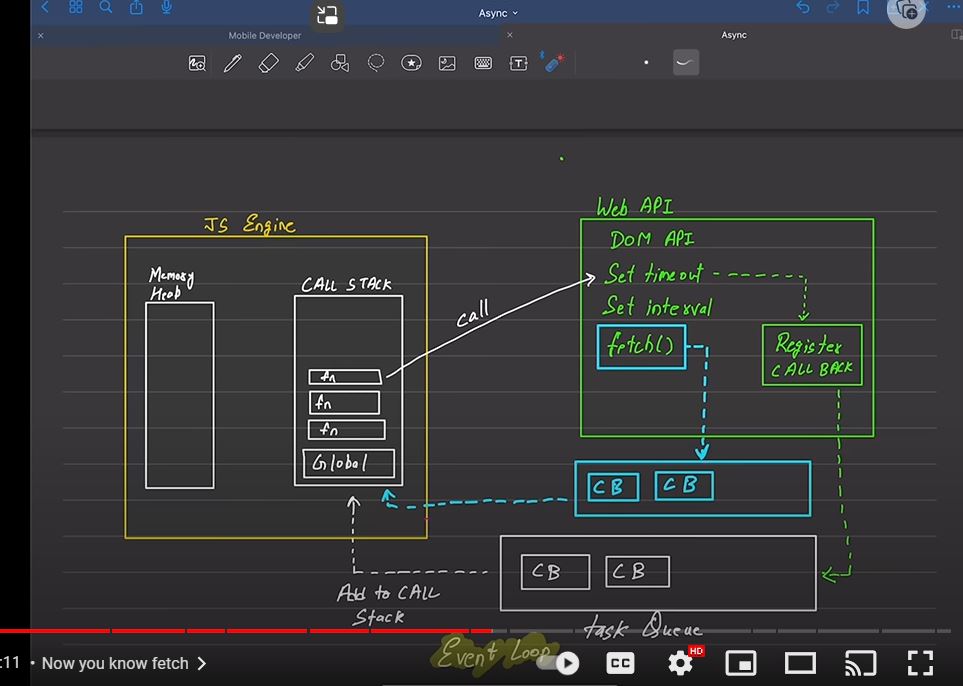 Async
Mobile Developer
Async
T
JS Engine
Memory
Heap
CALL STACK
fn
fn
fn
Global
call
Web API
DOM API
Set timeout
Set interval
fetch()
Register
CALL BACK
CB
CB
CB
CB
Add to CALL
Stack
task Queue
Event Loop
:11 • Now you know fetch
CC
HD